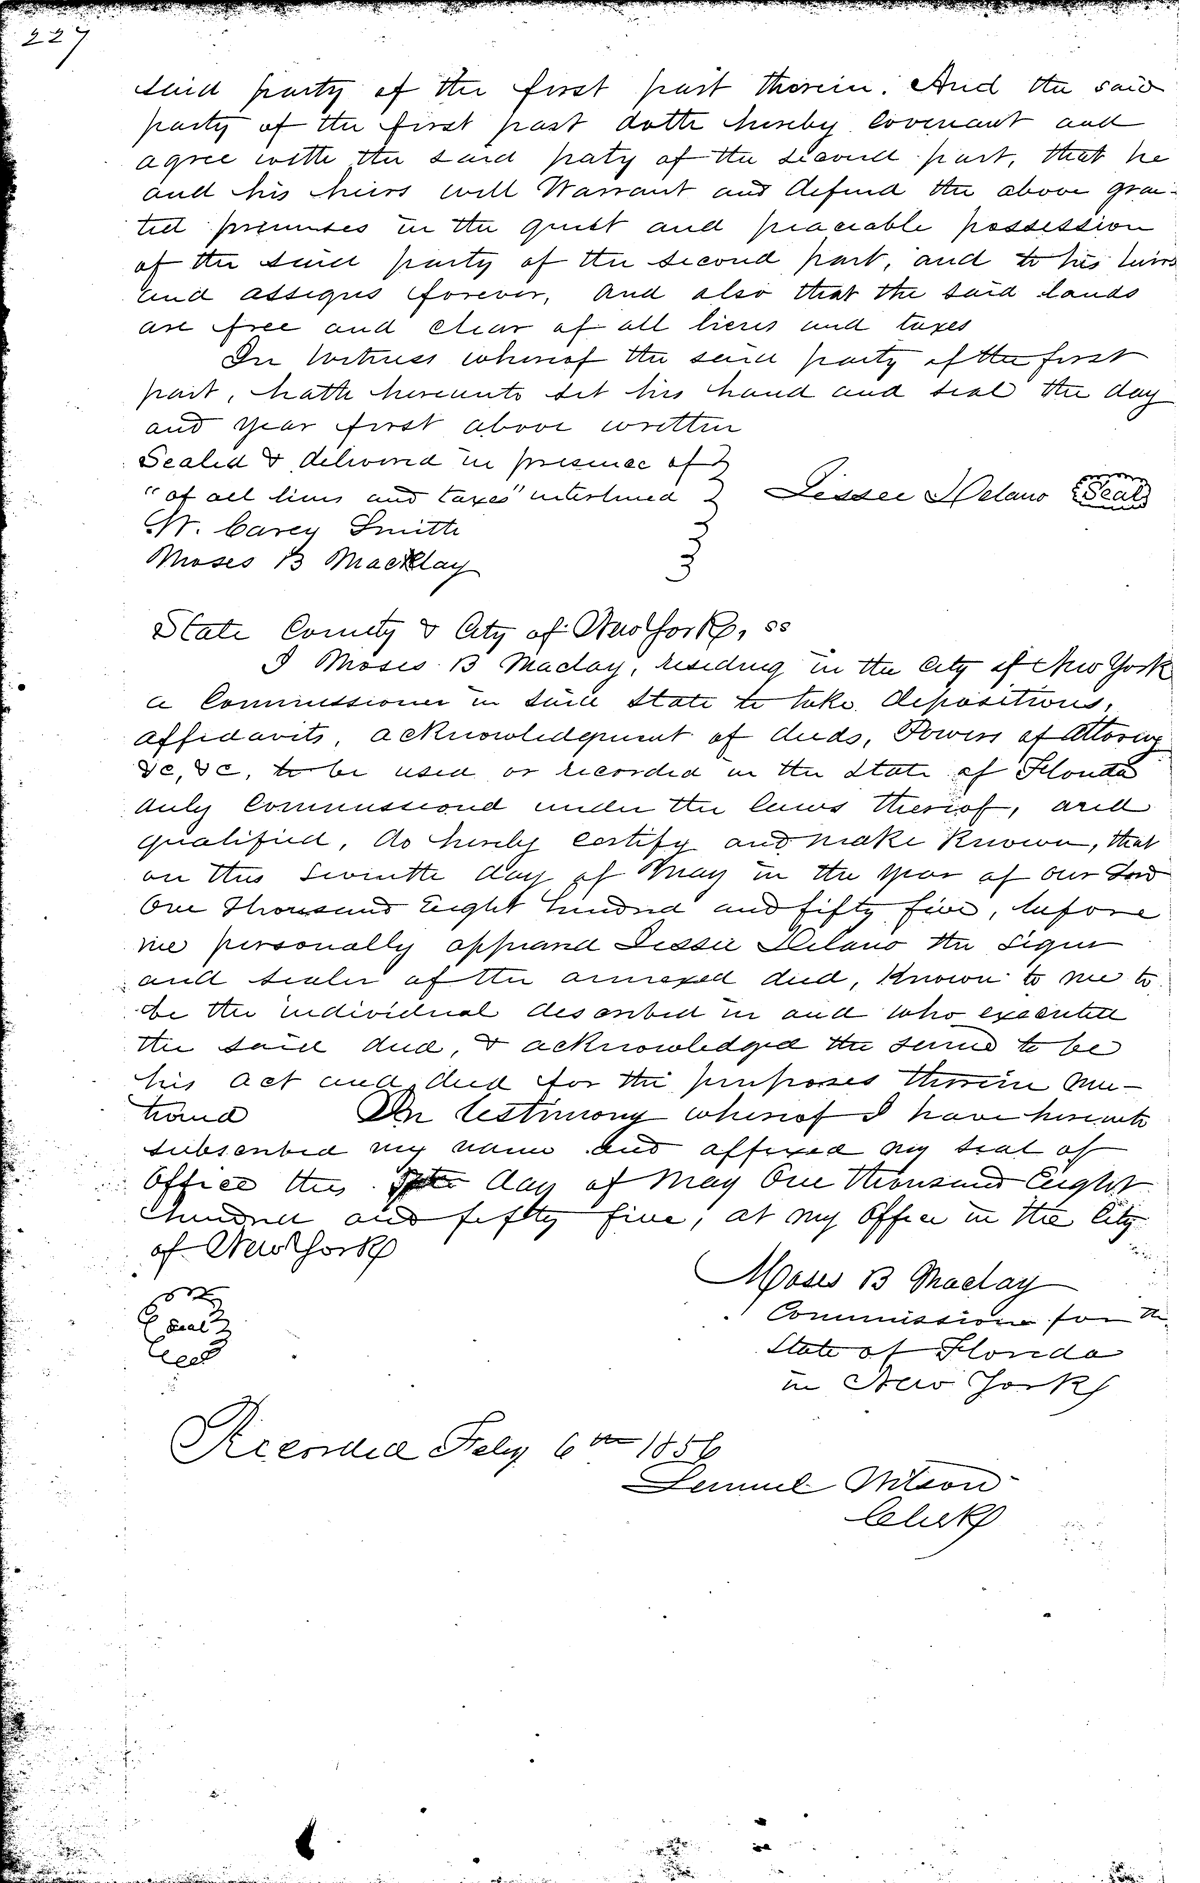 227
said party of the first part therein. And the said
party of the first part doth hereby covenant and
agree with the said paty of the second part, that he
and his heirs will Warrant and defend the above gran-
ted premises in the quiet and peaceable possession
of the said party of the second part, and to his heirs
and assigns forever, and also that the said lands
are free and clear of all liens and taxes
In Witness whereof the said party of the first
part, hath hereunto set his hand and seal the day
and year first above written
Sealed & delivered in presence of
"of all liens and taxes" interlined
Jessee Delano Seal
W. Carey Smith
Moses B Macklay
State County & City of New York, ss
I Moses B Maclay, residing in the City of New York
a Commissioner in said State to take depositions,
affidavits, acknowledgment of deeds, Powers of Attorney
&c, &c, to be used or recorded in the State of Florida
duly Commissioned under the laws thereof, and
qualified, do hereby certify and make known, that
on this seventh day of May in the year of our Lord
One thousand Eight hundred and fifty five, before
me personally appeared Jessee Delano the signer
and sealer of the annexed deed, known to me to
be the individual described in and who executed
the said deed, & acknowledged the same to be
his act and deed for the purposes therein men-
tioned In testimony whereof I have hereunto
subscribed my name and affixed my seal of
Office this day of May One thousand Eight
hundred and fifty five, at my Office in the City
of New York
Moses B Maclay
Seal
Commissioner for the
State of Florida
in New York
Recorded Feby 6th 1856
Lemuel Wilson
Clerk